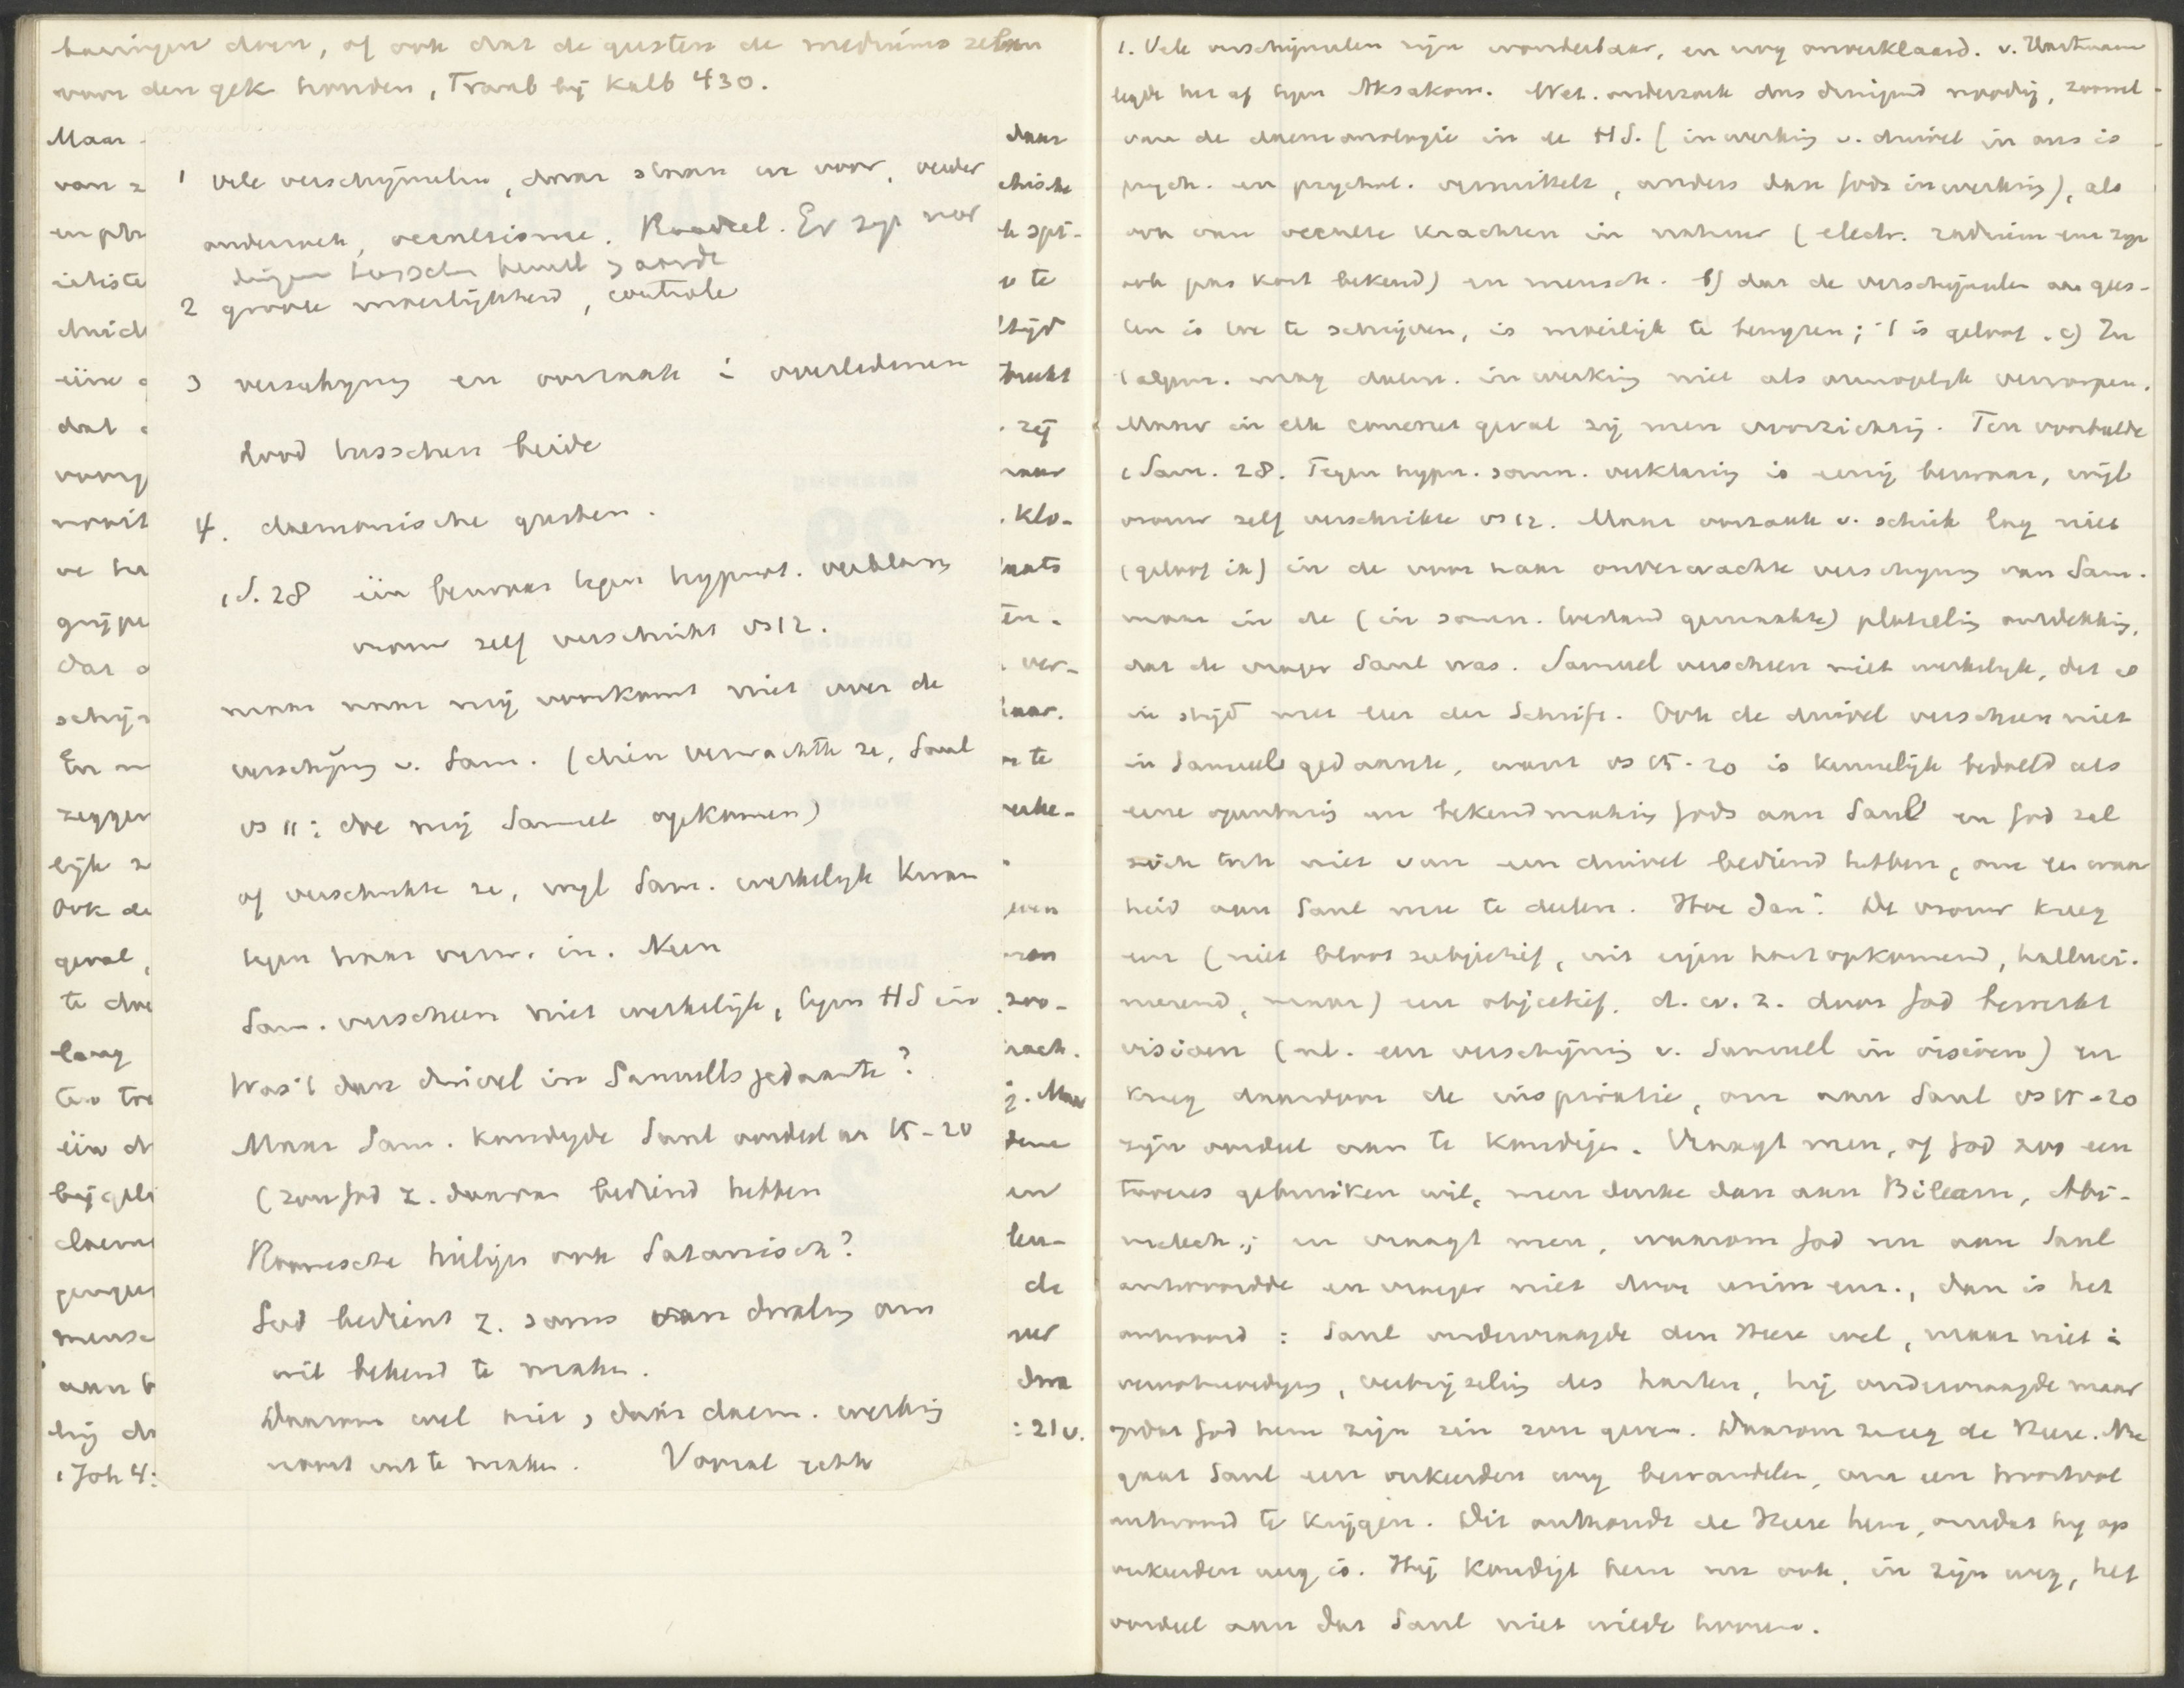 beeringen doen, of ook dat de geesten de mediums zelven
voor den gek houden, Traub bij Kalb 430.
Maar
van z
en phr
ietiste
chrich
één
dat
voor
nooit
ve ha
grijpe
dat
schijn
En
zeggen
lijk z
Ook de
geval,
te doe
lang
één
bijgel
daem
mensc
aan b
hij
1 Joh 4:
1 vele verschijnselen, daar staan we voor, verder
onderzoek, occultisme. Raadsel. Er zijn meer
dingen tusschen hemel > aarde
2 groote moeilijkheid, controle
3 verschijning en oorzaak : overledenen
dood tusschen beide
4. daemonische geesten.
1 S. 28 één bezwaar tegen hypnot. verklaring
vrouw zelf verschrikt vs 12.
maar naar mij voorkomt niet over de
verschijning v. Sam. (dien verwachtte ze, Saul
vs 11: doe mij Samuel opkomen)
of verschrikte ze, wijl Sam. werkelijk kwam
tegen haar verw. in. Neen
Sam. verscheen niet werkelijk, tegen HS in
Was 't dan duivel in Samuels gedaante?
Maar Sam. kondigde Saul oordeel aan 15-20
(zou God z. daarvan bediend hebben
Roomsche heiligen ook Satanisch?
God bedient z. soms van dwaling om
wil bekend te maken.
Daarom wel niet, dat daem. werking
nooit uit te maken. Vooral sekte
daar
chische
h spi-
te
altijd
zij
maar
klo-
plaats
en.
ver-
baar.
te
zoo-
j. Maar
en
de
door
: 21 v.
1. Vele verschijnselen zijn wonderbaar, en nog onverklaard. v. Hartmann
legde het af tegen Aksakow. Wet. onderzoek dus dringend noodig, zoowel
van de daemonologie in de HS. (inwerking v. duivel in ons is
psych. en psychol. vermiddeld, anders dan Gods inwerking), als
ook van occulte krachten in natuur (electr. radium enz. zijn
ook pas kort bekend) en mensch. b) dat de verschijnselen aan gees-
ten is toe te schrijven, is moeilijk te bewijzen; 't is geloof. c) In
't algem. mag daem. inwerking niet als onmogelijk verworpen.
Maar in elk concreet geval zij men voorzichtig. Ten voorbeelde
1 Sam. 28. Tegen hypn. somn. verklaring is eenig bezwaar, wijl
vrouw zelf verschrikte vs 12. Maar oorzaak v. schrik lag niet
(geloof ik) in de voor haar onverwachte verschijning van Sam.
maar in de (in somn. toestand gemaakte) plotseling ontdekking,
dat de vrager Saul was. Samuel verscheen niet werkelijk, dat is
in strijd met leer der Schrift. Ook de duivel verscheen niet
in Samuels gedaante, want vs 15-20 is kennelijk bedoeld als
eene openbaring en bekendmaking Gods aan Saul en God zal
zich toch niet van een duivel bediend hebben, om zijn waar
heid aan Saul mee te deelen. Hoe dan? De vrouw kreeg
een (niet bloot subjectief, uit eigen hart opkomend, halluci-
neerend, maar) een objectief, d. w. z. door God bewerkt
visioen (nl. een verschijning v. Samuel in visioen) en
kreeg daardoor de inspiratie, om aan Saul vs 15-20
zijn oordeel aan te kondigen. Vraagt men, of God zoo een
tooveres gebruiken wil, men denke dan aan Bileam, Abi-
melech; en vraagt men, waarom God nu aan Saul
antwoordde en vroeger niet door urim enz., dan is het
antwoord: Saul ondervraagde den Heere wel, maar niet i
verootmoediging, verbrijzeling des harten, hij ondervraagde maar
opdat God hem zijn zin zou geven. Daarom zweeg de Heere. Nu
gaat Saul een verkeerden weg bewandelen, om een
antwoord te krijgen. Dit onthoudt de Heere hem, omdat hij op
verkeerden weg is. Hij kondigt hem nu ook, in zijn weg, het
oordeel aan dat Saul niet wilde hooren.